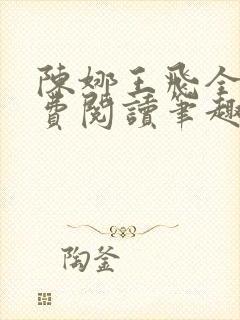 陳娜王飛全
費閱讀筆趣
陶釜